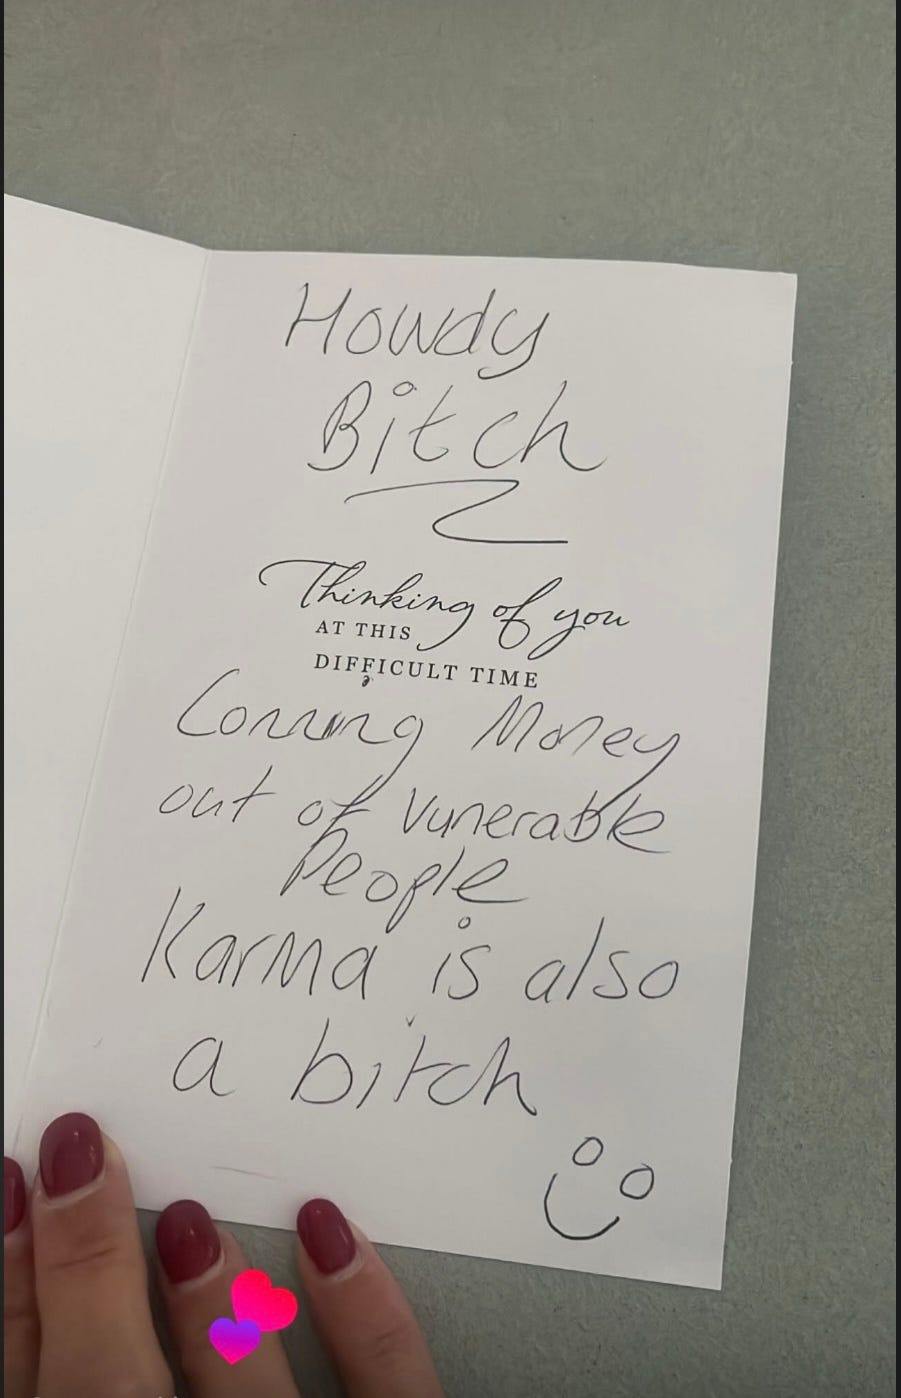 Howdy
Bitch
Thinking of you
AT THIS
DIFFICULT TIME
Conning Money
out of Vunerable
People
Karma is also
a bitch